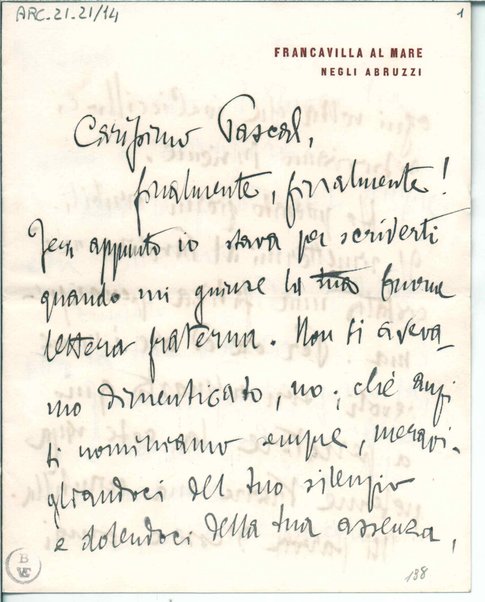 ARC-21-21/14
1
FRANCAVILLA AL MARE
NEGLI ABRUZZI
Carissimo Pascal,
finalmente, finalmente!
Jeri appunto io stava per scriverti
quando mi giunse la tua buona
lettera fraterna. Non ti aveva-
mo dimenticato, no; ché anzi
ti nominiamo sempre, meravi-
gliandoci del tuo silenzio
e dolendoci della tua assenza,
138